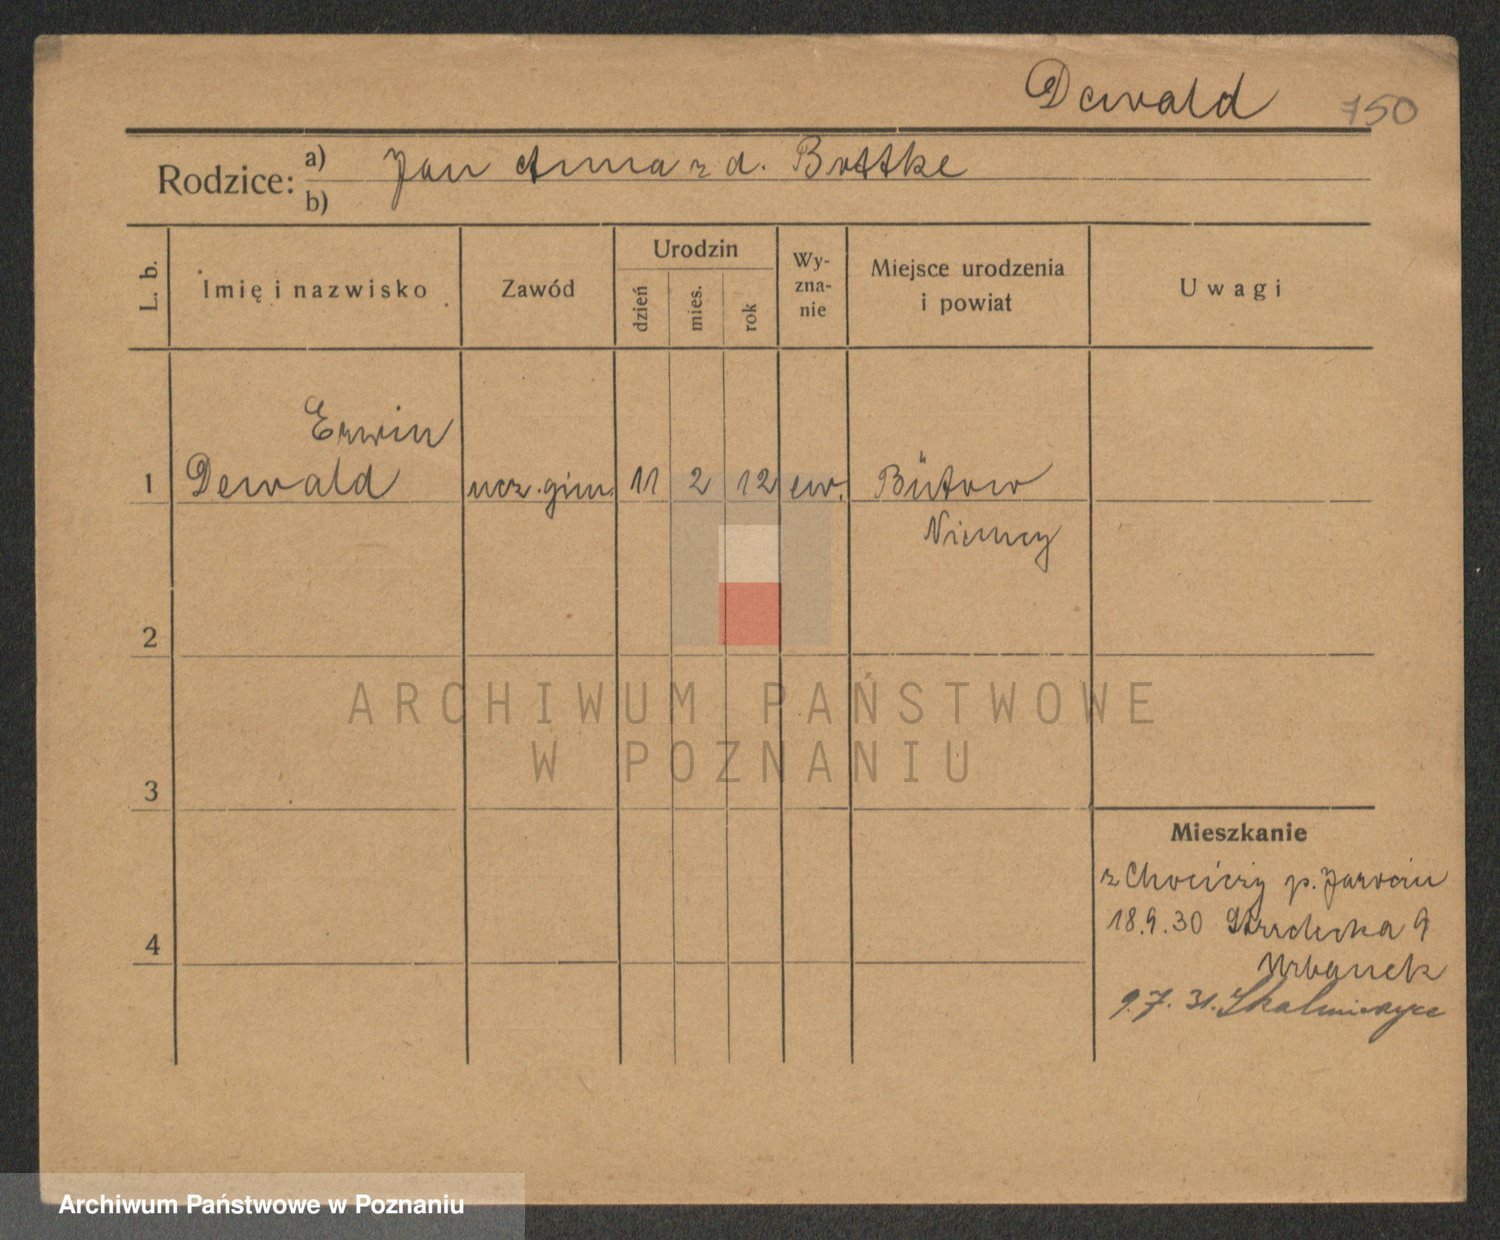 Dewald 750
Rodzice: a) Jan Anna z d. Bottke
b)
L. b. Imię i nazwisko Zawód Urodzin dzień mies. rok Wy-zna-nie Miejsce urodzenia i powiat Uwagi
Erwin
1 Dewald ucz. gim. 11 2 12 ew. Bütow
Niemcy
2
ARCHIWUM PAŃSTWOWE
W POZNANIU
3
Mieszkanie
z Chociczy p. Jarocin
18.9.30 9
4
Urbanek
9.7.31. Skalmierzyce
Archiwum Państwowe w Poznaniu